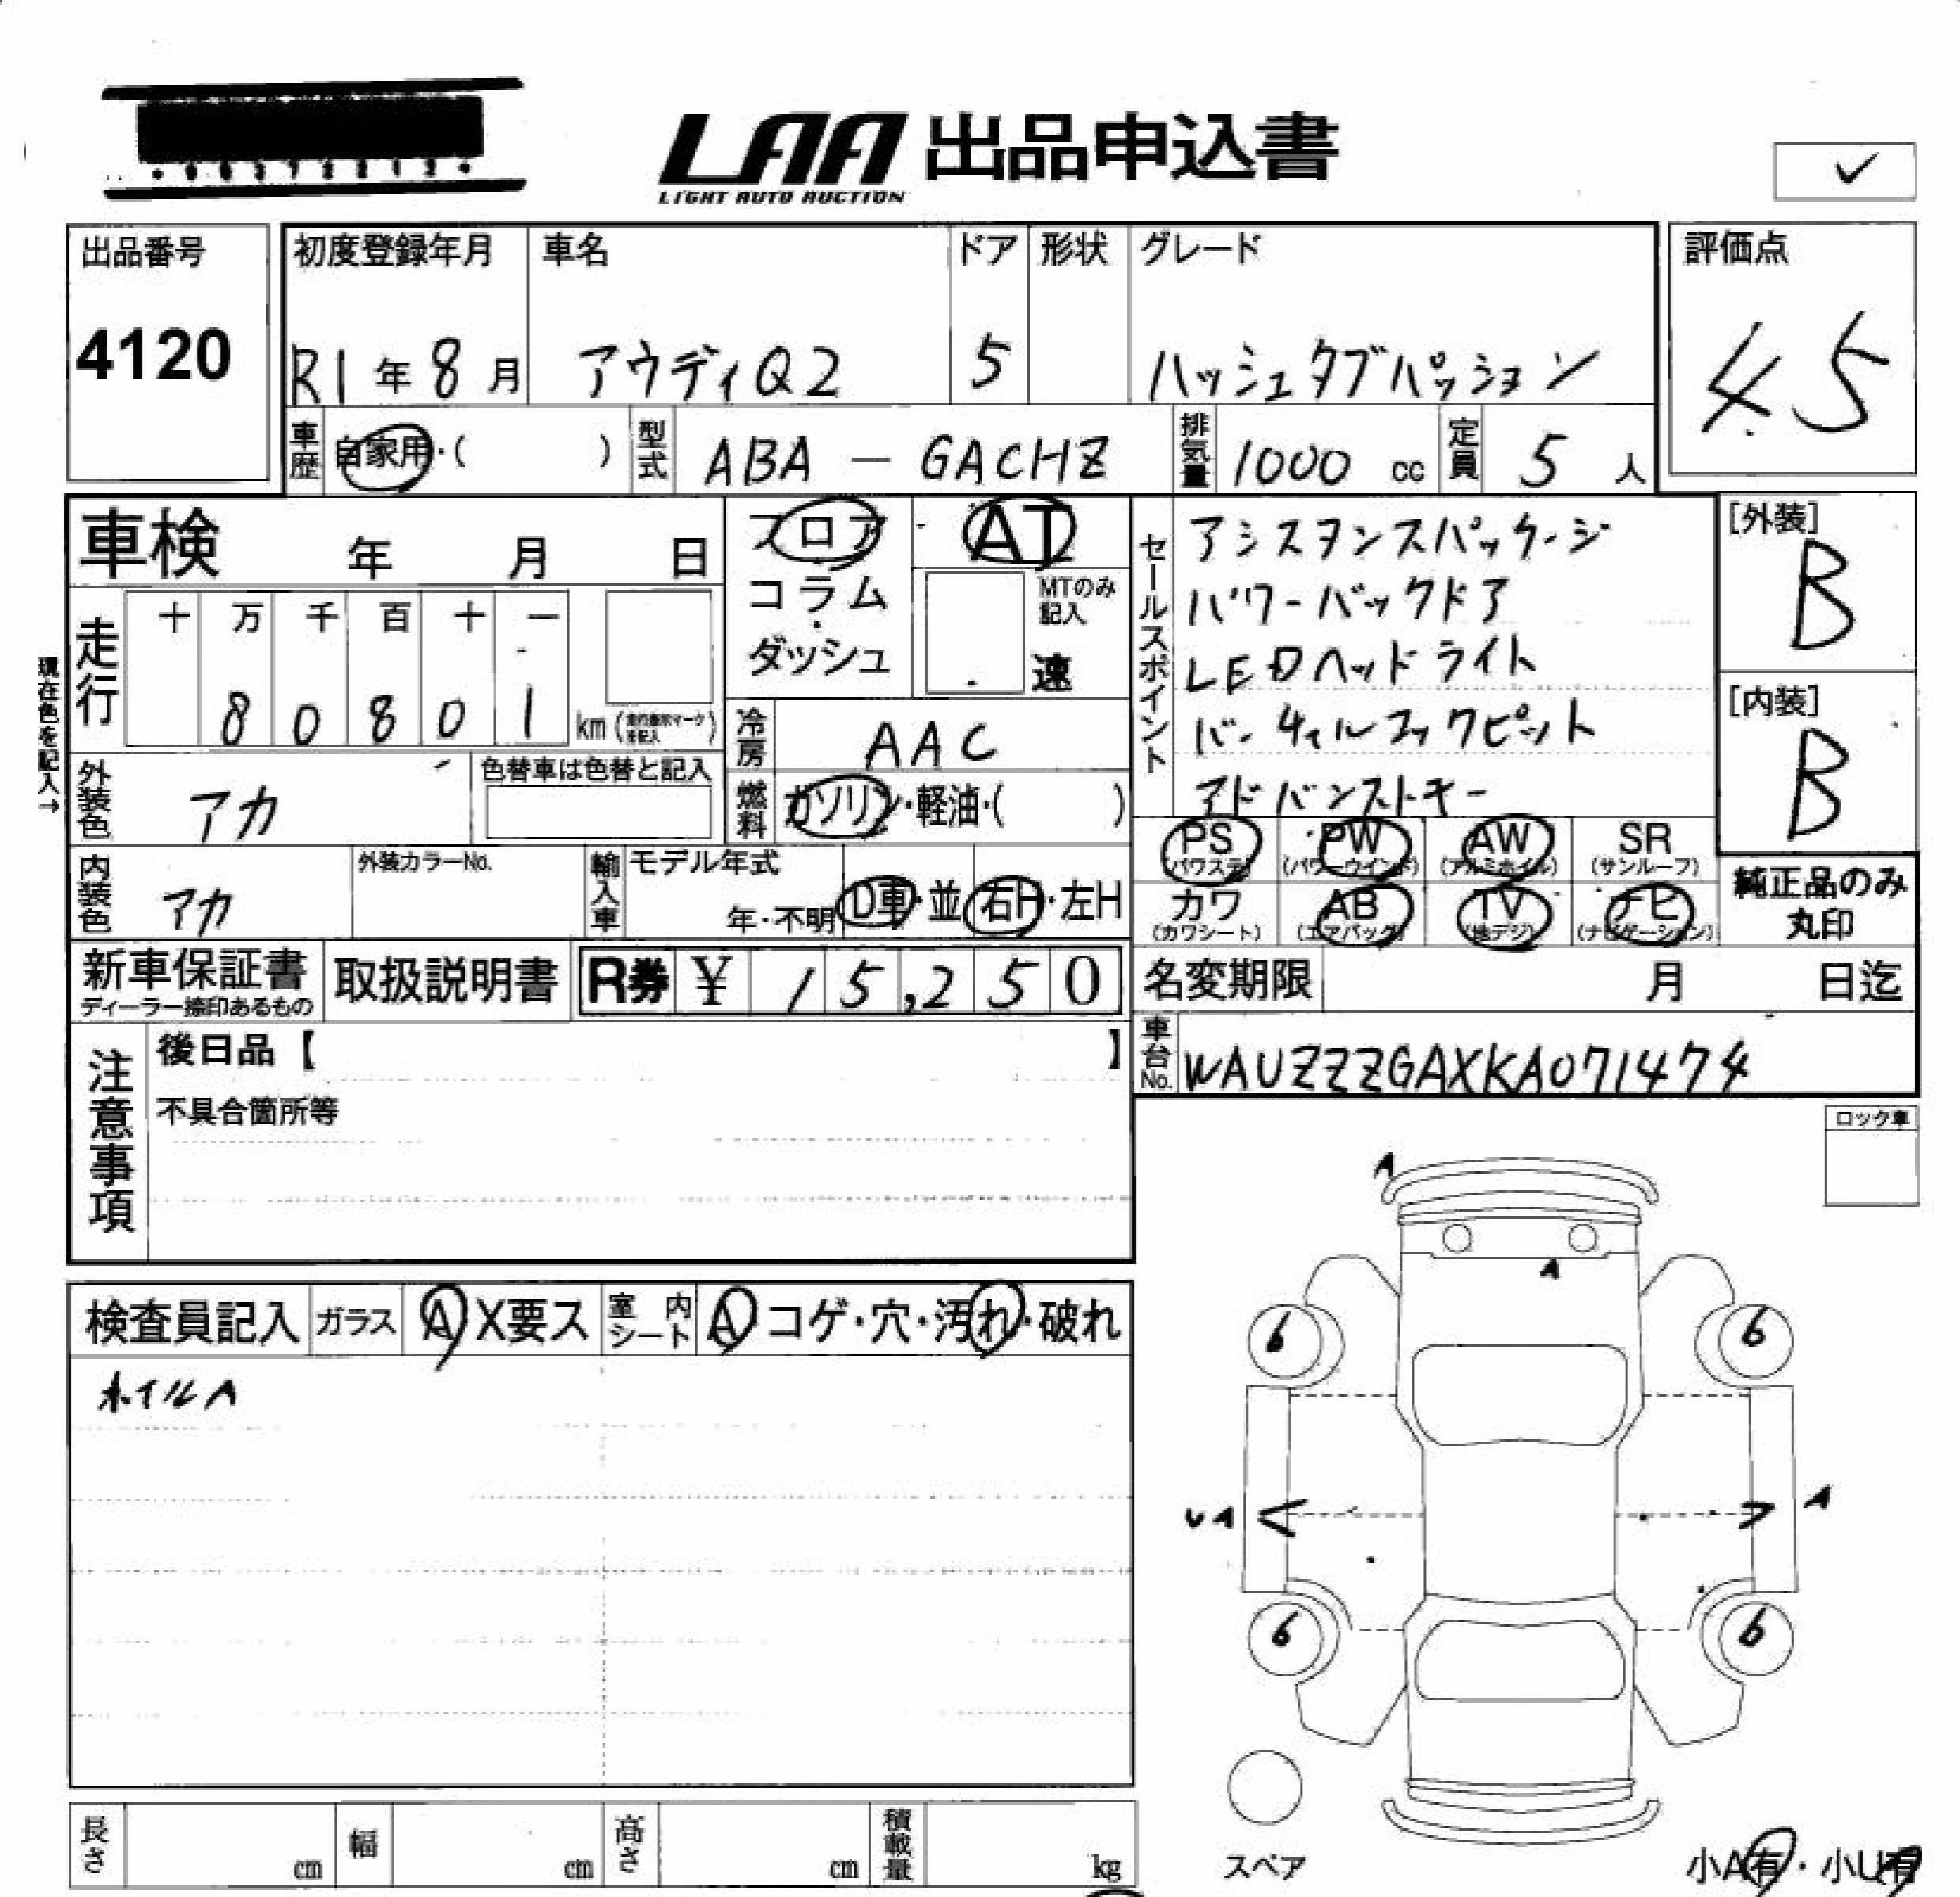 LAA 出品申込書
LIGHT AUTO AUCTION
✓
出品番号 初度登録年月 車名 ドア 形状 グレード 評価点
4120 R1年8月 アウディQ2 5 ハッシュタグパッション 4.5
車歴 自家用・( ) 型式 ABA-GACHZ 排気量 1000 cc 定員 5 人
車検 年 月 日
フロア AT
コラム MTのみ記入
ダッシュ 速
セールスポイント
アシスタンスパッケージ
パワーバックドア
LEDヘッドライト
バーチャルコックピット
アドバンストキー
[外装]
B
[内装]
B
現在色を記入→
走行 十 万 千 百 十 一
8 0 8 0 1 km
冷房 AAC
外装色 アカ 色替車は色替と記入
燃料 ガソリン・軽油・( )
PS PW AW SR
(パワステ) (パワーウインド) (アルミホイル) (サンルーフ)
カワ AB TV ナビ
(カワシート) (エアバッグ) (地デジ) (ナビゲーション)
純正品のみ
丸印
内装色 アカ 外装カラーNo. 輸入車 モデル年式 年・不明 D車・並 右H・左H
新車保証書 取扱説明書 R券 ¥ 15,250
ディーラー捺印あるもの
名変期限 月 日迄
車台No. WAUZZZGAXKA071474
注意事項
後日品【 】
不具合箇所等
ロック車
検査員記入 ガラス A X要ス 室内シート A コゲ・穴・汚れ・破れ
ホイルA
A
A
6 6
UA A
6 6
スペア
長さ cm 幅 cm 高さ cm 積載量 kg
小A有・小U有